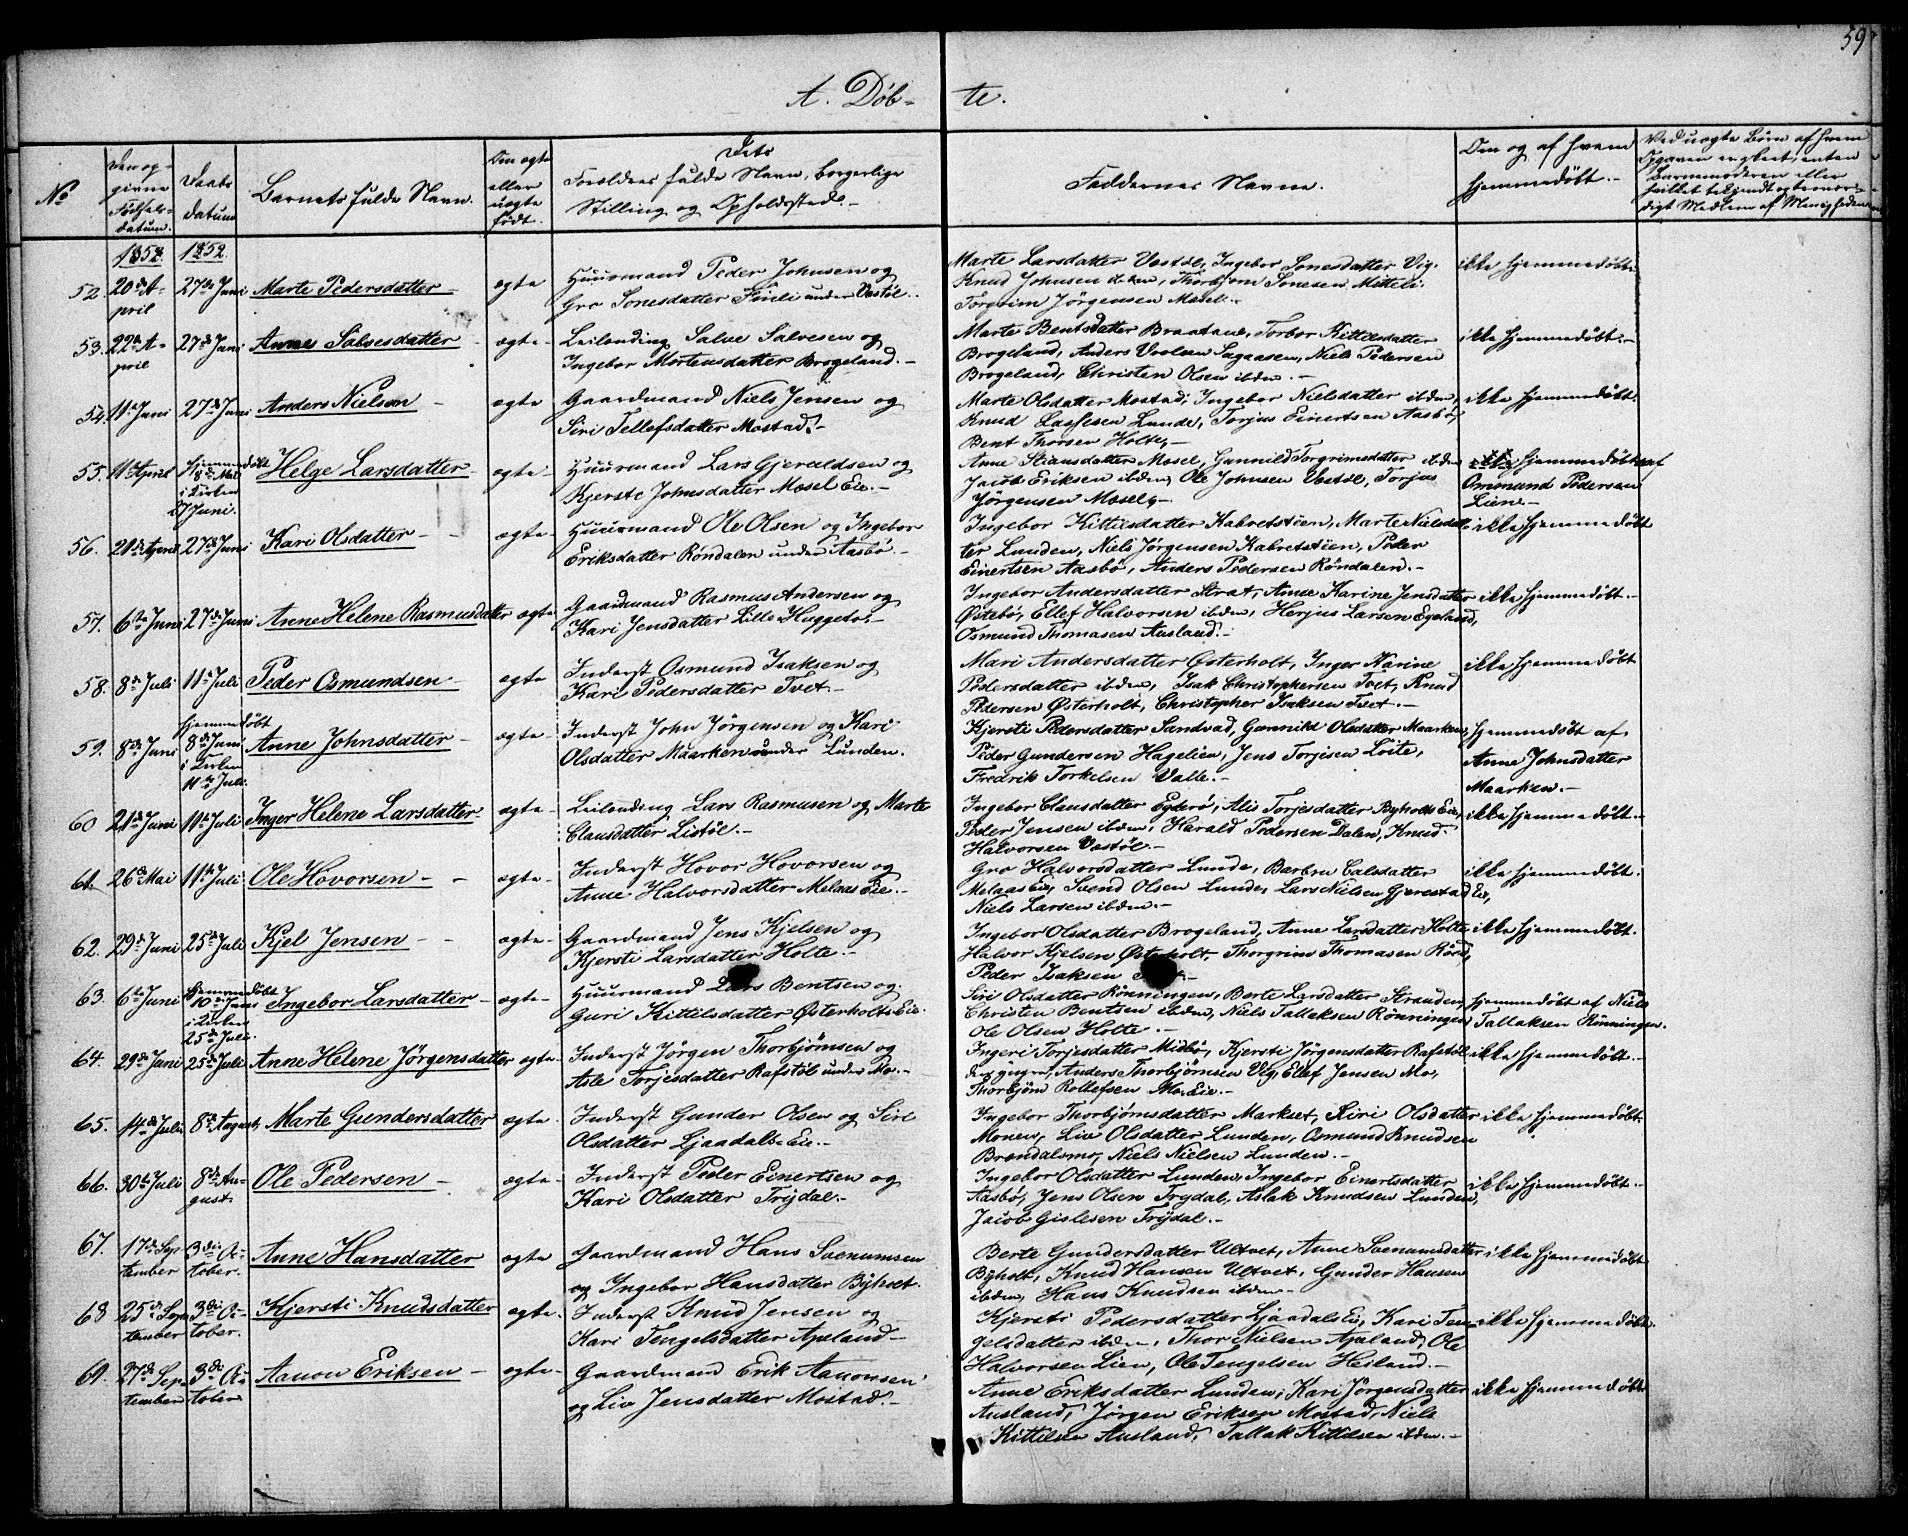 59
A. Døb- te.
No
Den opgivne Fødselsdatum.
Daabsdatum
Barnets fulde Navn.
Om ægte eller uægte født.
Dets Forældres fulde Navn, borgerlige Stilling og Opholdssted.-
Faddernes Navne.
Om og af hvem hjemmedøbt.-
Ved uægte Børn af hvem
1852. 1852.
52. 20de April 27de Juni Marte Pedersdatter ægte Huusmand Peder Johnsen og
Gro Sonesdatter under Vastøl.
Marte Larsdatter Vastøl, Ingebor Sonesdatter Vig,
Knud Johnsen ibden, Thorbjørn Sonesen Mitteli
Torgrim Jörgensen Mosel.-
ikke hjemmedøbt.
53. 22de April 27de Juni Anne Salvesdatter - ægte- Leilending Salve Salvesen og
Ingebor Mortensdatter Brogeland.-
Marte Bentsdatter Braatane, Torbor Kittilsdatter
Brogeland, Anders Sagaesen, Niels Pedersen
Brogeland, Christen Olsen ibden.-
ikke hjemmedøbt.-
54. 11te Juni 27de Juni Anders Nielsen - ægte Gaardmand Niels Jensen og
Siri Tellefsdatter Mostad.-
Marte Olsdatter Mostad, Ingebor Nielsdatter ibden,
Knud Lunde, Torjus Einertsen Aasbö,
Bent Thorsen Holte.-
ikke hjemmedøbt.
55. 11te April hjemmedøbt 18de Mai i Kirken 27 Juni. Helge Larsdatter - ægte- Huusmand Lars Gjeruldsen og
Kjersti Johnsdatter Mosel Eie.-
Anne Stiansdatter Mosel, Gunnild Torgrimsdatter ibden
Jacob Eriksen ibden, Ole Johnsen Vastøl, Torjus
Jörgensen Mosel.-
hjemmedøbt af
Osmund Pedersen
Liene-
56. 21de April 27de Juni Kari Olsdatter - - ægte- Huusmand Ole Olsen og Ingebor
Eriksdatter Röndalen under Aasbö.-
Ingebor Kittilsdatter Kabretstöen, Marte Nielsdatter
Lunden, Niels Jörgensen Kabretstöen, Peder
Einertsen Aasbö, Anders Pedersen Röndalen.-
ikke hjemmedøbt
57. 6te Juni 27de Juni Anne Helene Rasmusdatter ægte- Gaardmand Rasmus Andersen og
Kari Jensdatter Lille Huggeto.-
Ingebor Andersdatter Strat, Anne Karine Jensdatter
Østebö, Ellef Halvorsen ibden, Herjus Larsen Egeland,
Osmund Thomasen Ausland.-
ikke hjemmedøbt.-
58. 8de Juli 11te Juli Peder Osmundsen ægte Inderst Osmund Isaksen og
Kari Pedersdatter Tvet-
Mari Andersdatter Østerholt, Inger Karine
Pedersdatter ibden, Isak Christophersen Tvet, Knud
Pedersen Østerholt, Christopher Isaksen Tvet.-
ikke hjemmedøbt
59. 8de Juni hjemmedøbt 8de Juni i Kirken 11te Juli. Anne Johnsdatter - ægte- Inderst John Jörgensen og Kari
Olsdatter Maarken under Lunden.
Kjersti Pedersdatter Sandvad, Gunnild Olsdatter Maarken,
Peder Gundersen Hagelien, Jens Torjesen Löite,
Fredrik Torkelsen Valle.-
hjemmedøbt af
Anne Johnsdatter
Maarken.-
60 21de Juni 11te Juli Inger Helene Larsdatter- ægte- Leilending Lars Rasmusen og Marte
Clausdatter Listöl.-
Ingebor Clausdatter Eyderö, Alis Torjesdatter Byholts Eie,
Peder Jensen ibden, Harald Pedersen Dalen, Knud
Halvorsen Vastöl.-
ikke hjemmedøbt.-
61. 26de Mai 11te Juli Ole Hovorsen - - ægte- Inderst Hovor Hovorsen og
Anne Halvorsdatter Melaas Eie.-
Gro Halvorsdatter Lunde, Barbro Calsdatter
Melaas Eie, Svend Olsen Lunde, Lars Nielsen Gjerestad Eie,
Niels Larsen ibden.-
ikke hjemmedøbt.
62. 29de Juni 25de Juli Kjel Jensen - - ægte- Gaardmand Jens Kjelsen og
Kjersti Larsdatter Holte.-
Ingebor Olsdatter Brogeland, Anne Larsdatter Holte
Halvor Kjelsen Østerholt, Thorgrim Thomasen
Peder Isaksen
ikke hjemmedøbt.
63. 6te Juni hjemmedøbt 10de Juni i Kirken 25de Juli. Ingebor Larsdatter - ægte- Huusmand Lars Bentsen og
Guri Kittilsdatter Østerholts Eie.
Siri Olsdatter Rönningen, Berte Larsdatter Stranden
Christen Bentsen ibden, Niels Tallaksen Rönningen
Ole Olsen Holte.-
hjemmedøbt af Niels
Tallaksen Rönningen.
64. 29de Juni 25de Juli Anne Helene Jörgensdatter ægte- Inderst Jörgen Thorbjörnsen og
Asle Torjesdatter Rafstöl under Mo.-
Ingeri Torjesdatter Midbö, Kjersti Jörgensdatter Rafstöl
Anders Thorbjörnsen Vig, Ellef Jensen Mo,
Thorbjörn Rollefsen Mo Eie.-
ikke hjemmedøbt.-
65. 14de Juli 8de August, Marte Gundersdatter ægte- Inderst Gunder Olsen og Siri
Olsdatter Ljaadals Eie.-
Ingebor Thorbjörnsdatter Markset, Siri Olsdatter
Monen, Liv Olsdatter Lunden, Osmund Knudsen
Brondalsmo, Niels Nielsen Lunden.-
ikke hjemmedøbt.
66. 30te Juli 8de August. Ole Pedersen - ægte- Inderst Peder Einertsen og
Kari Olsdatter Trydal.-
Ingebor Olsdatter Lunden, Ingebor Einertsdatter
Aasbö, Jens Olsen Trydal, Aslak Knudsen Lunden,
Jacob Gislesen Trydal.-
ikke hjemmedøbt.-
67. 17de September 3die October. Anne Hansdatter ægte Gaardmand Hans Svenumsen
og Ingebor Hansdatter Byholt.
Berte Gundersdatter Ultvet, Anne Svenumsdatter
Byholt, Knud Hansen Ultvet, Gunder Hansen
ibden, Hans Knudsen ibden-
ikke hjemmedøbt
68 25de September 3die October. Kjersti Knudsdatter ægte- Inderst Knud Jensen og
Kari Tengelsdatter Apeland-
Kjersti Pedersdatter Ljaadals Eie, Kari Tengelsdatter
ibden, Thor Nielsen Apeland, Ole
Halvorsen Lien, Ole Tengelsen Heiland.-
ikke hjemmedøbt.
69. 27de September 3die October Aanon Eriksen - ægte- Gaardmand Erik Aanonsen
og Liv Jensdatter Mostad.-
Anne Eriksdatter Lunden, Kari Jörgensdatter
Ausland, Jörgen Eriksen Mostad, Niels
Kittilsen Ausland, Tallak Kittilsen ibden.-
ikke hjemmedøbt